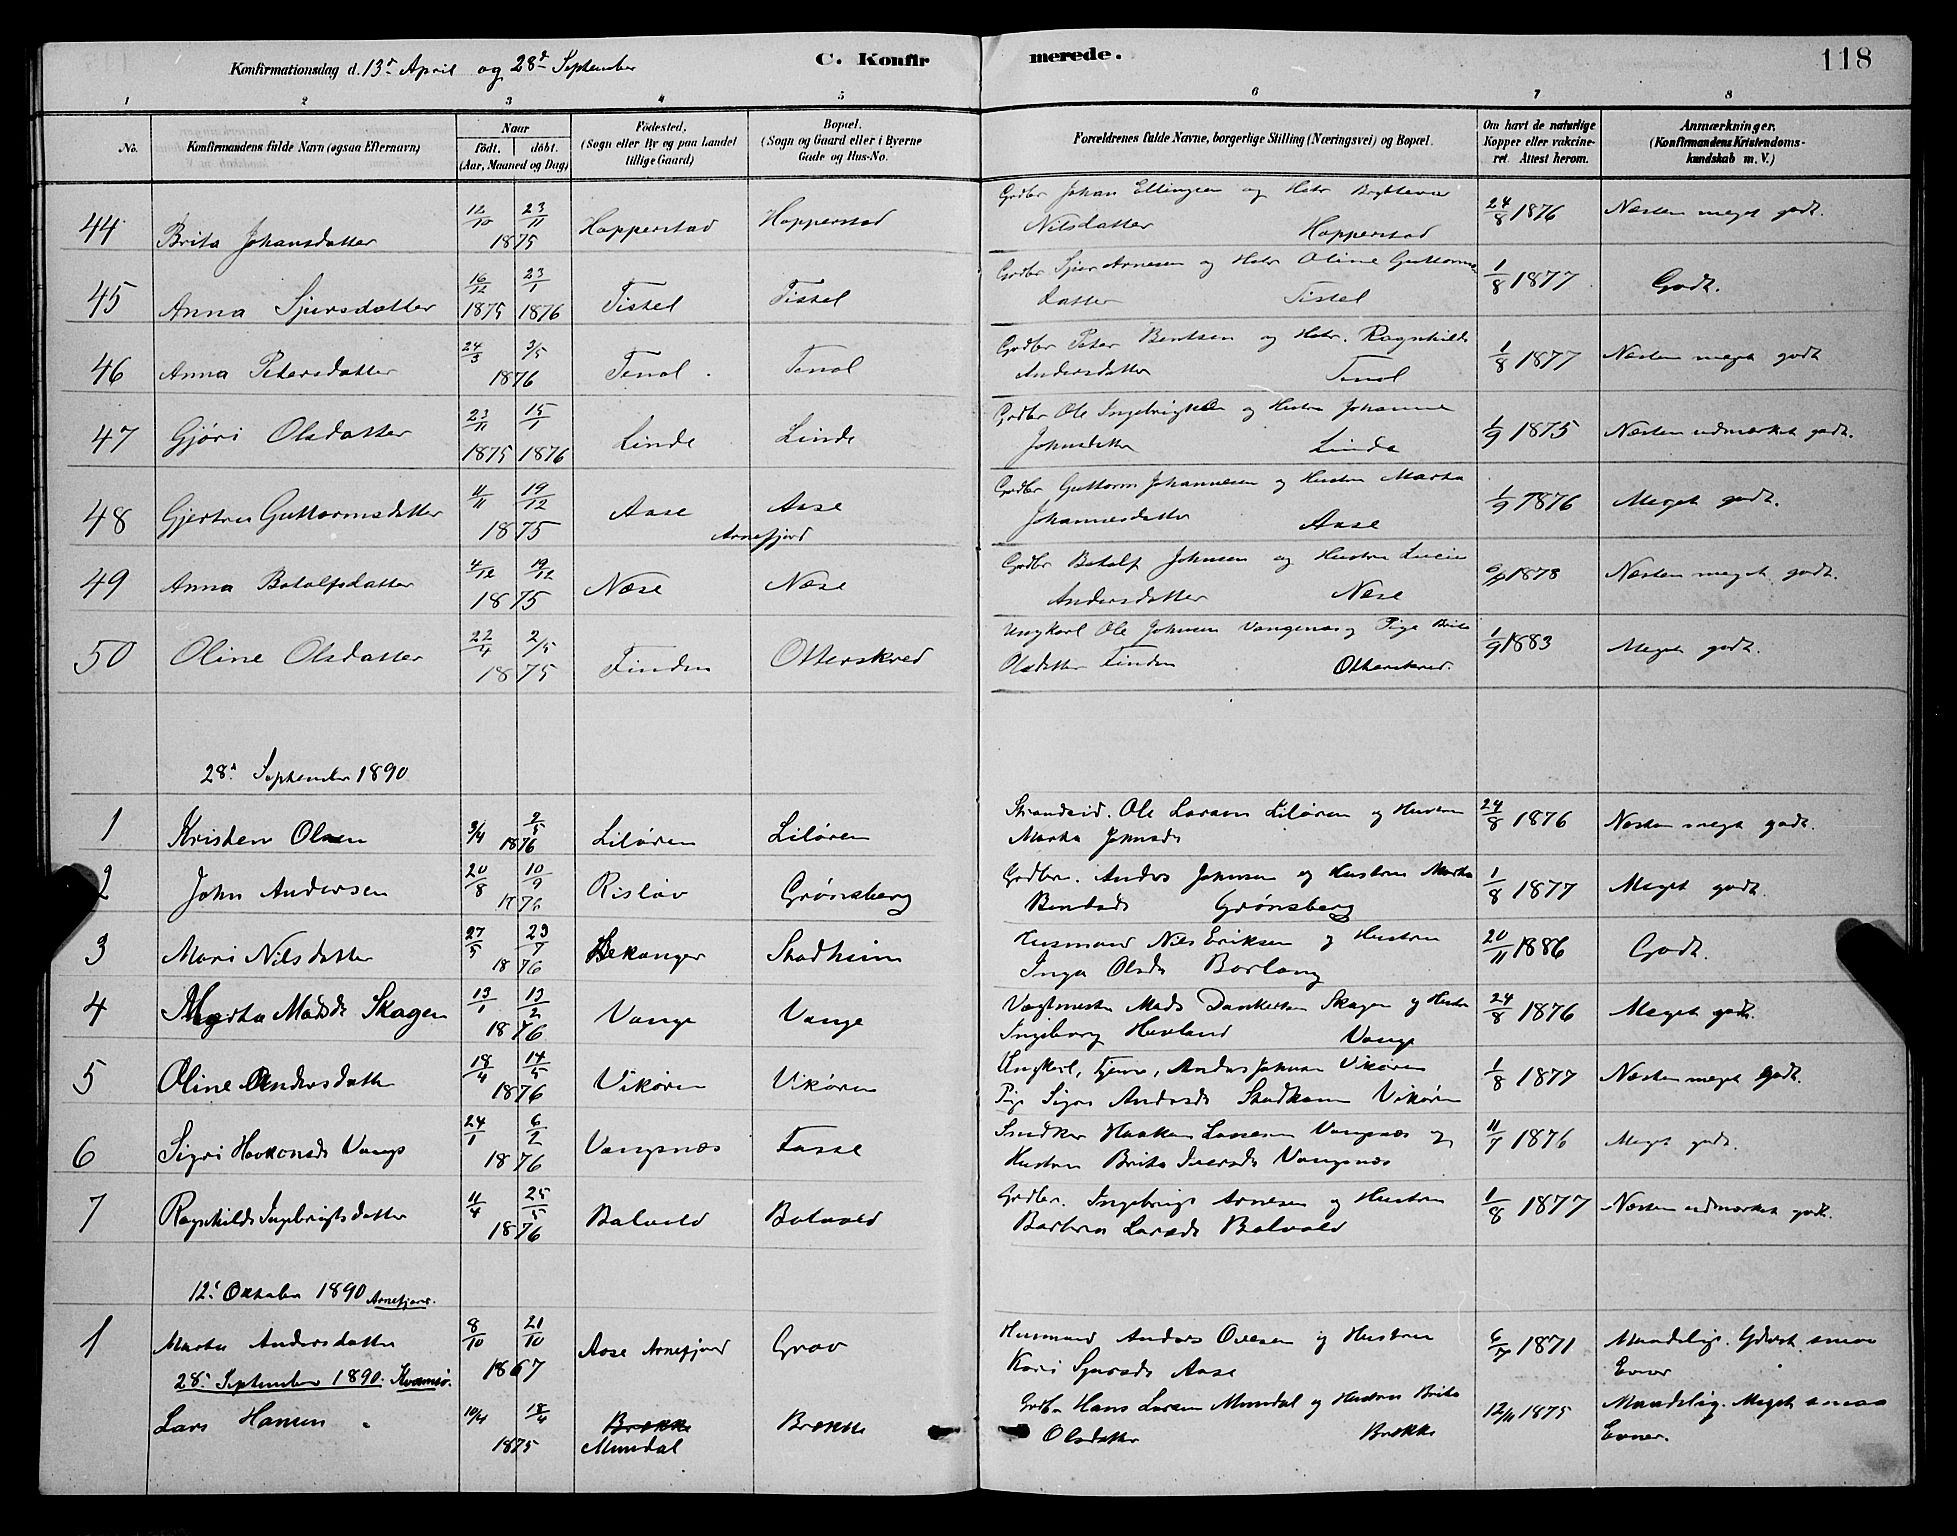 Konfirmationsdag d. 13de April og 28de September
C. Konfirmerede.
118
1 2 3 4 5 6 7 8
No. Konfirmandens fulde Navn (ogsaa Efternavn) Naar födt. döbt. (Aar, Maaned og Dag) Födested, (Sogn eller By og paa Landet tillige Gaard) Bopæl. (Sogn og Gaard eller i Byerne Gade og Hus-No. Forældrenes fulde Navne, borgerlige Stilling (Næringsvei) og Bopæl. Om havt de naturlige Kopper eller vakcineret. Attest herom. Anmærkninger. (Konfirmandens Kristendomskundskab m. V.)
44 Brita Johansdatter 12/10 23/11 1875 Hopperstad Hopperstad Grdbr Johan Ellingsen og Hstr Brytteva
Nilsdatter Hopperstad 24/8 1876 Næsten meget godt.
45 Anna Sjursdatter 16/12 1875 23/1 1876 Tistel Tistel Grdbr Sjur Arnesen og Hstr Oline Guttorms
datter Tistel 1/8 1877 Godt.
46 Anna Petersdatter 24/3 3/5 1876 Tenol Tenol Grdbr Peter Bentsen og Hstr. Ragnhild
Andersdatter Tenol 1/8 1877 Næsten meget godt
47 Gjøri Olsdatter 23/11 1875 15/1 1876 Linde Linde Grdbr Ole Ingebrigtsen og Hustru Johanne
Johnsdatter Linde 1/9 1875 Næsten udmærket godt.
48 Gjertru Guttormsdatter 11/11 19/12 1875 Aase Aase Grdbr Guttorm Johannesen og Hustru Marta
Johannesdatter Aase 1/9 1876 Meget godt.
Arnefjord
49 Anna Botolfsdatter 4/12 19/12 1875 Næse Næse Grdbr Botolf Johnsen og Hustru Lucie
Andersdatter Næse 1878 Næsten meget godt.
50 Oline Olsdatter 22/4 2/5 1875 Finden Otterskred Ungkarl Ole Johnsen Vangsnes og Pige Brita
Olsdatter Finden Otterskred. 1/9 1883 Meget godt.
28de September 1890
1 Kristen Olsen 3/4 2/5 1876 Liløren Liløren Strandsid. Ole Larsen Liløren og Hustru
Marta Johnsd 24/8 1876 Næsten meget godt.
2 John Andersen 20/8 10/9 1876 Risløv Grønsberg Grdbr. Anders Johnsen og Hustru Marta
Bentsd Grønsberg 1/8 1877 Meget godt.
3 Mari Nilsdatter 27/5 23/7 1876 Lekanger Stadheim Husmand Nils Eriksen og Hustru
Inga Olsd Borlaug 20/11 1886 Godt.
4 Marta Madsd. Skagen 13/1 13/2 1876 Vange Vange Vagtmester Mads Dankertsen Skagen og Hustru
Ingeborg Hovland Vange 24/8 1876 Meget godt.
5 Oline Andersdatter 18/4 14/5 1876 Vikøren Vikøren Ungkarl, Tjener, Anders Johnsen Vikøren
Pige Signe Andersd Stadheim Vikøren 1/8 1877 Næsten meget godt.
6 Sigri Haakonsd Vangs 24/1 6/2 1876 Vangsnæs Fosse Snedker Haakon Lassesen Vangsnæs og
Hustru Brita Iversd Vangsnæs 11/7 1876 Meget godt.
7 Ragnhild Ingebrigtsdatter 11/4 25/5 1876 Bolvold Bolvold Grdbr. Ingebrigt Arnesen og Hustru
Barbra Larsd Bolvold 1/8 1877 Næsten udmærket godt.
12te Oktober 1890 Arnefjord.
1 Marta Andersdatter 8/10 21/10 1867 Aase Arnefjord Grov Husmand Anders Ovesen og Hustru
Kari Sjursd Aase 6/7 1871 Maadelig. Yderst smaa
Evner
28de September 1890. Kvamsø.
Lars Hansen 10/4 18/4 1875 Brekke Mundal Brekke Grdbr Hans Larsen Mundal og Hustru Brita
Olsdatter Brekke 12/11 1875 Maadelig. Meget smaa
Evner.